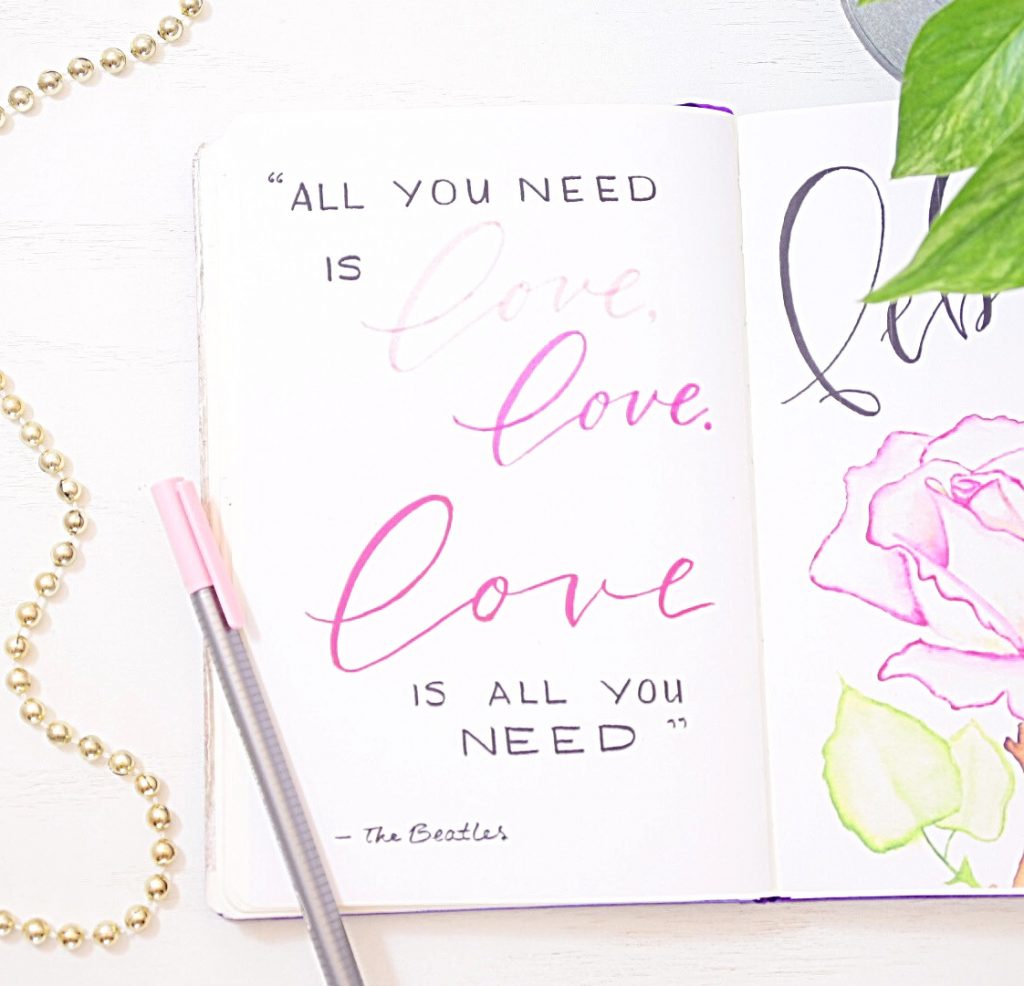 “ALL YOU NEED
IS love,
love.
love
IS ALL YOU
NEED”
– The Beatles